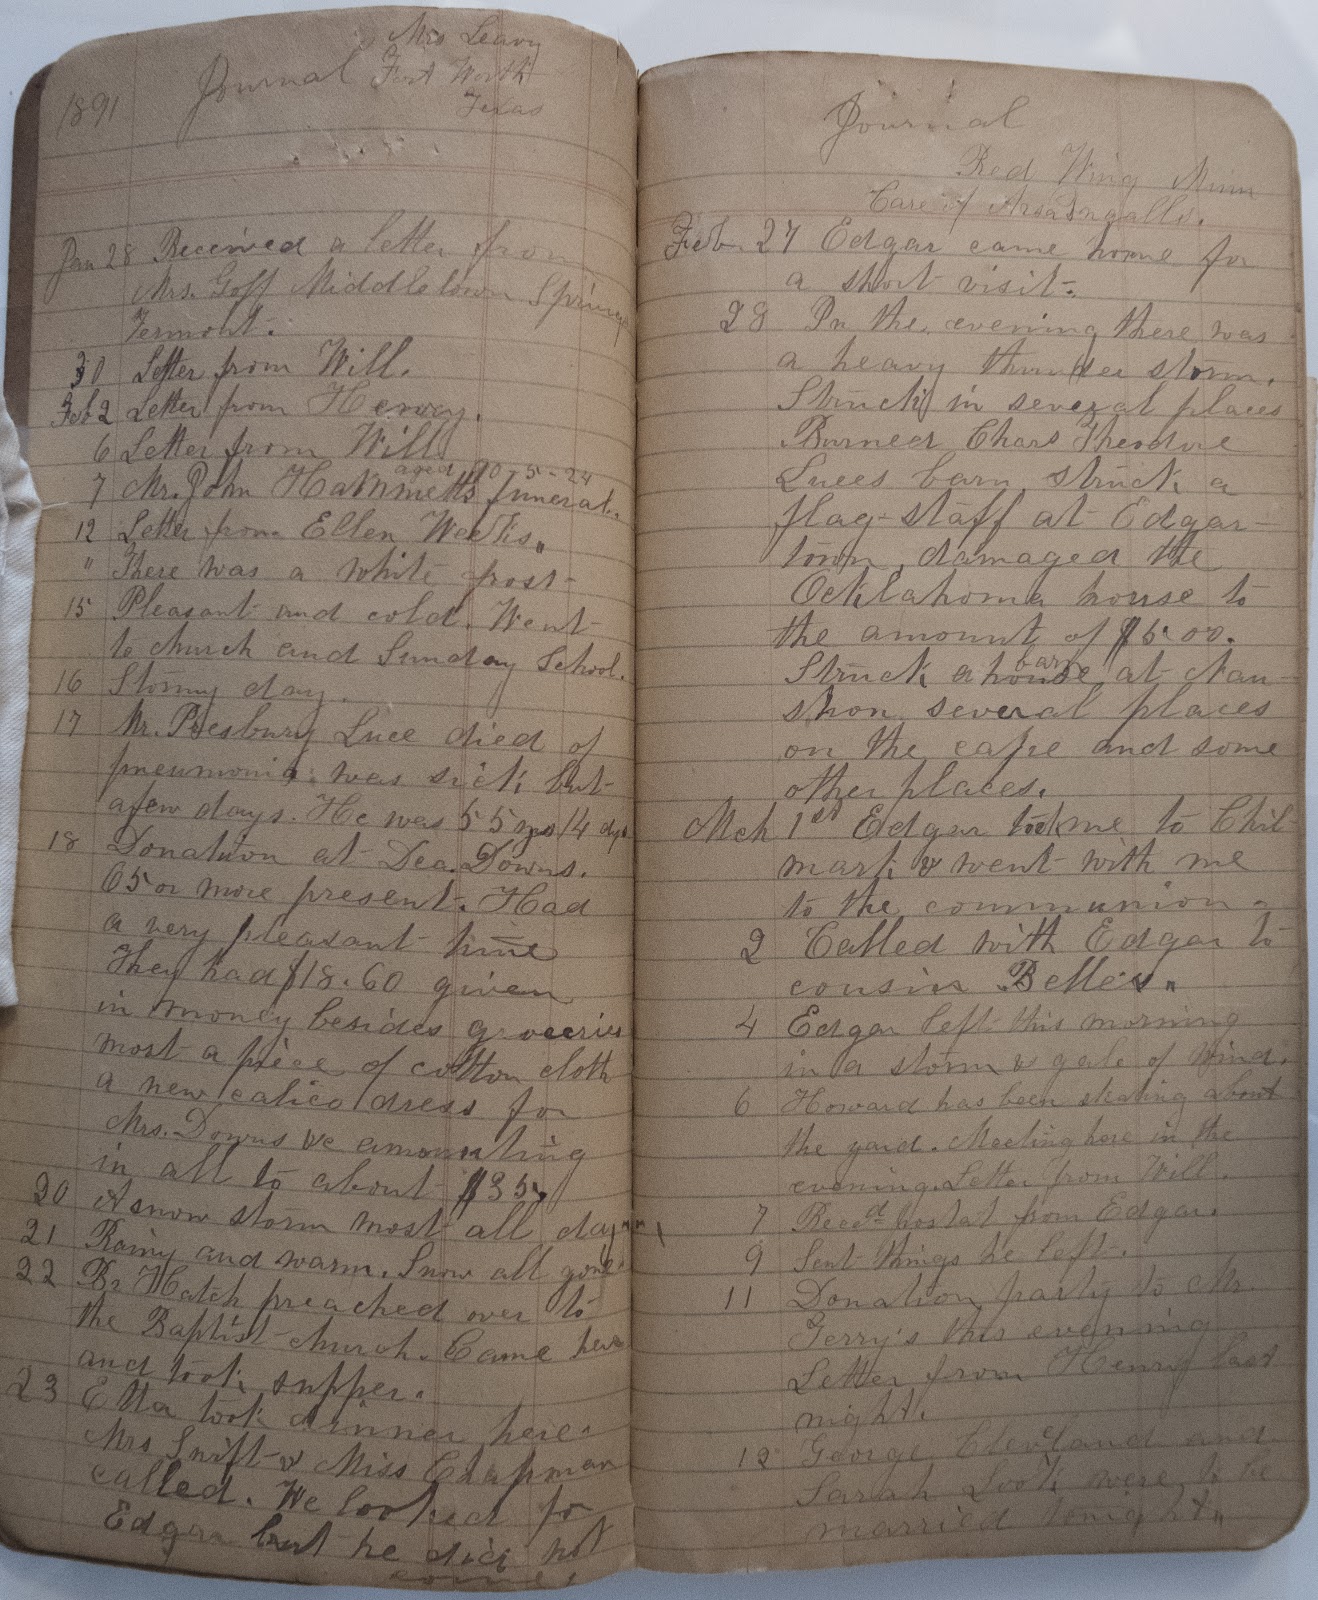 Mrs Leavy
1891 Journal Fort Worth
Texas
Jan 28 Received a letter from
Mrs. Goff Middletown Springs
Vermont.
30 Letter from Will.
Feb 2 Letter from Hervey.
6 Letter from Will
aged 90-5-24
7 Mr. John Hammetts funeral.
12 Letter from Ellen Weeks.
" There was a white frost
15 Pleasant and cold. Went
to church and Sunday School.
16 Stormy day.
17 Mr. Presbury Luce died of
pneumonia was sick but
a few days. He was 55 yrs 14 dys
18 Donation at Dea. Downs.
65 or more present. Had
a very pleasant time
They had $18.60 given
in money besides groceries
most a piece of cotton cloth
a new calico dress for
Mrs. Downs &c amounting
in all to about $35.
20 A snow storm most all day
21 Rainy and warm. Snow all gone
22 Br Hatch preached over to
the Baptist church. Came here
and took supper.
23 Etta took dinner here.
Mrs Swift & Miss Chapman
called. We looked for
Edgar but he did not
come.
Journal
Red Wing Minn
Care of Ingalls.
Feb. 27 Edgar came home for
a short visit.
28 In the evening there was
a heavy thunder storm.
Struck in several places
Burned Chars Theodore
Luces barn, struck a
flag-staff at Edgar-
town, damaged the
Ocklahoma house to
the amount of $5.00.
barn
Struck a house at Nau-
shon, several places
on the cape and some
other places.
Mch 1st Edgar took me to Chil-
mark & went with me
to the communion.
2 Called with Edgar to
cousin Belle's.
4 Edgar left this morning
in a storm & gale of wind.
6 Howard has been skating about
the yard. Meeting here in the
evening. Letter from Will.
7 Recd postal from Edgar.
9 Sent things he left.
11 Donation party to Mr.
Terry's this evening
Letter from Henry last
night.
12 George Cleveland and
Sarah Look were to be
married tonight.